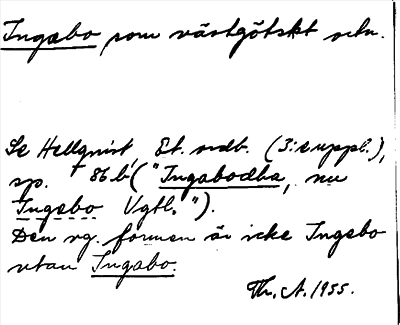 Ingabo som västgötskt ortn.
Se Hellquist, Et. ordb. (3: suppl.),
sp. 86 b ("Ingabodha, nu
Ingebo Vgtl.").
Den rg. formen är icke Ingebo
utan Ingabo.
Th. A. 1955.